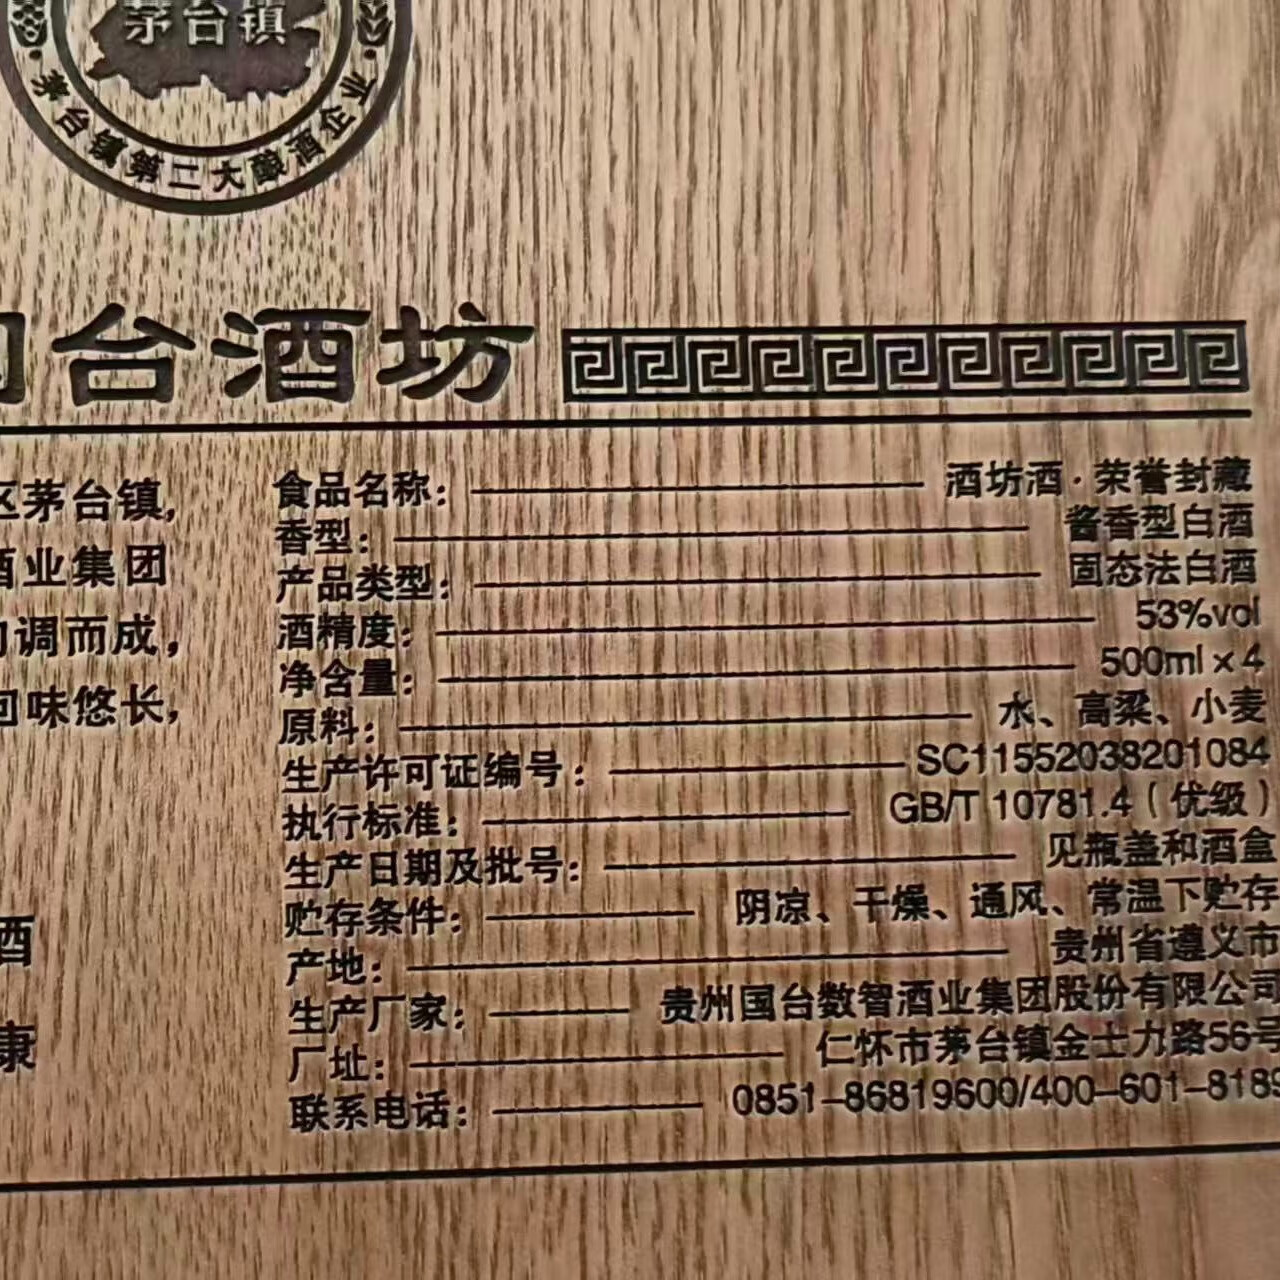 茅台镇
茅台镇第二大酿酒企业
台酒坊
区茅台镇,
酒业集团
调而成,
回味悠长,
酒
康
食品名称: 酒坊酒·荣誉封藏
香型: 酱香型白酒
产品类型: 固态法白酒
酒精度: 53%vol
净含量: 500ml×4
原料: 水、高粱、小麦
生产许可证编号: SC11552038201084
执行标准: GB/T 10781.4(优级)
生产日期及批号: 见瓶盖和酒盒
贮存条件: 阴凉、干燥、通风、常温下贮存
产地: 贵州省遵义市
生产厂家: 贵州国台数智酒业集团股份有限公司
厂址: 仁怀市茅台镇金士力路56号
联系电话: 0851-86819600/400-601-8189